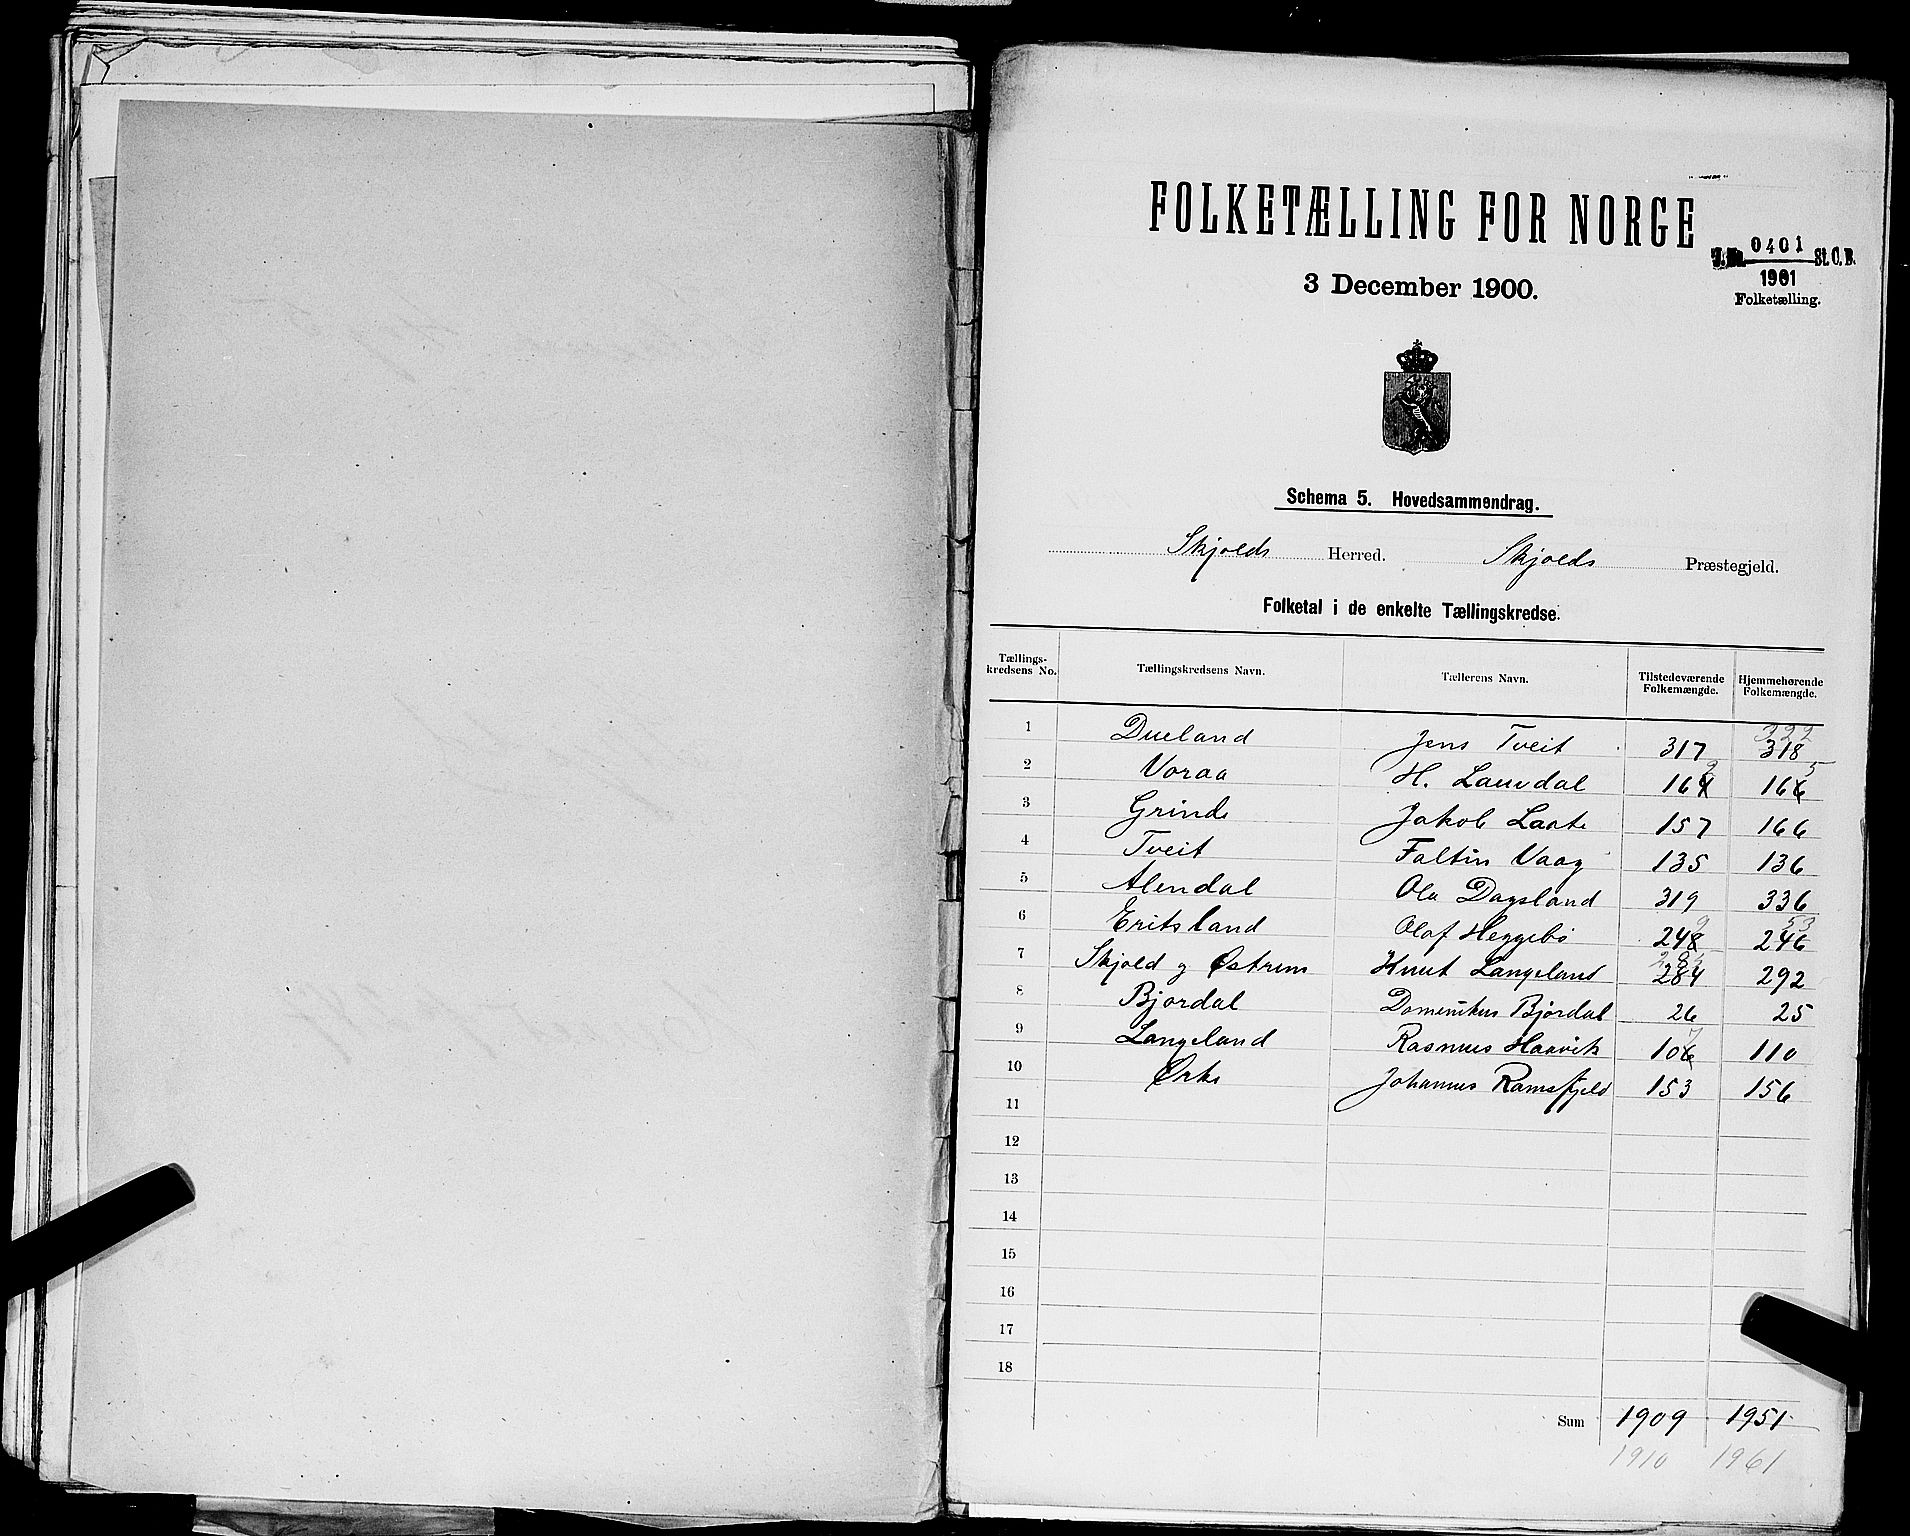 FOLKETÆLLING FOR NORGE
J. No. 0401 St. C. B.
1901
Folketælling.
3 December 1900.
Schema 5. Hovedsammendrag.
Skjolds Herred. Skjolds Præstegjeld.
Folketal i de enkelte Tællingskredse.
Tællings-kredsens No. Tællingskredsens Navn. Tællerens Navn. Tilstedeværende Folkemængde. Hjemmehørende Folkemængde.
1 Dueland Jens Tveit 317 318 322
2 Voraa H. Lauvdal 164 2 166 5
3 Grinde Jakob Laate 157 166
4 Tveit Faltin Vaag 135 136
5 Alendal Ola Dagsland 319 336
6 Eritsland Olaf Heggebö 248 9 246 53
7 Skjold og Østrem Knut Langeland 284 292
8 Bjordal Domenikus Bjordal 26 25
9 Langeland Rasmus Haavik 106 7 110
10 Ørke Johannes Ramsfjeld 153 156
11
12
13
14
15
16
17
18
Sum 1909 1951
1910 1961